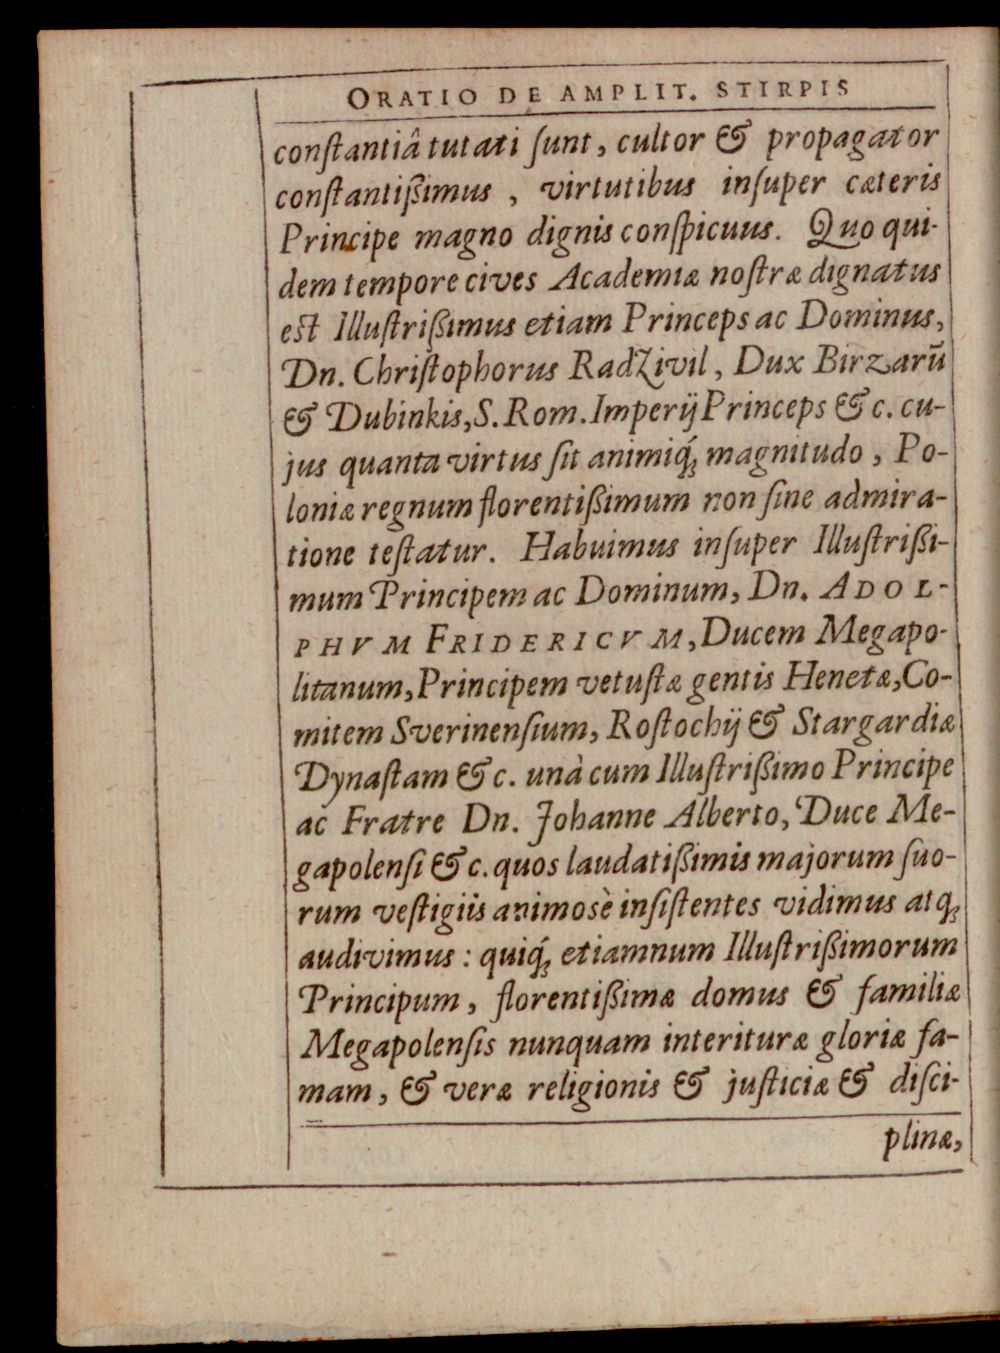 ORATIO DE AMPLIT. STIRPIS
conſtantiâ tutati ſunt, cultor & propagator
conſtantißimus, virtutibus inſuper cæteris
Principe magno dignis conſpicuus. Quo qui-
dem tempore cives Academiæ noſtræ dignatus
eſt Illuſtrißimus etiam Princeps ac Dominus,
Dn. Chriſtophorus Radzivil, Dux Birzarū
& Dubinkis, S. Rom. Imperij Princeps & c. cu-
jus quanta virtus ſit animiq́; magnitudo, Po-
loniæ regnum florentißimum non ſine admira-
tione teſtatur. Habuimus inſuper Illuſtrißi-
mum Principem ac Dominum, Dn. ADOL-
PHVM FRIDERICVM, Ducem Megapo-
litanum, Principem vetuſtæ gentis Henetæ, Co-
mitem Sverinenſium, Roſtochij & Stargardiæ
Dynaſtam & c. unà cum Illuſtrißimo Principe
ac Fratre Dn. Johanne Alberto, Duce Me-
gapolenſi & c. quos laudatißimis majorum ſuo-
rum veſtigiis animosè inſiſtentes vidimus atq;
audivimus: quiq́; etiamnum Illuſtrißimorum
Principum, florentißimæ domus & familiæ
Megapolenſis nunquam interituræ gloriæ fa-
mam, & veræ religionis & juſticiæ & diſci-
plinæ,